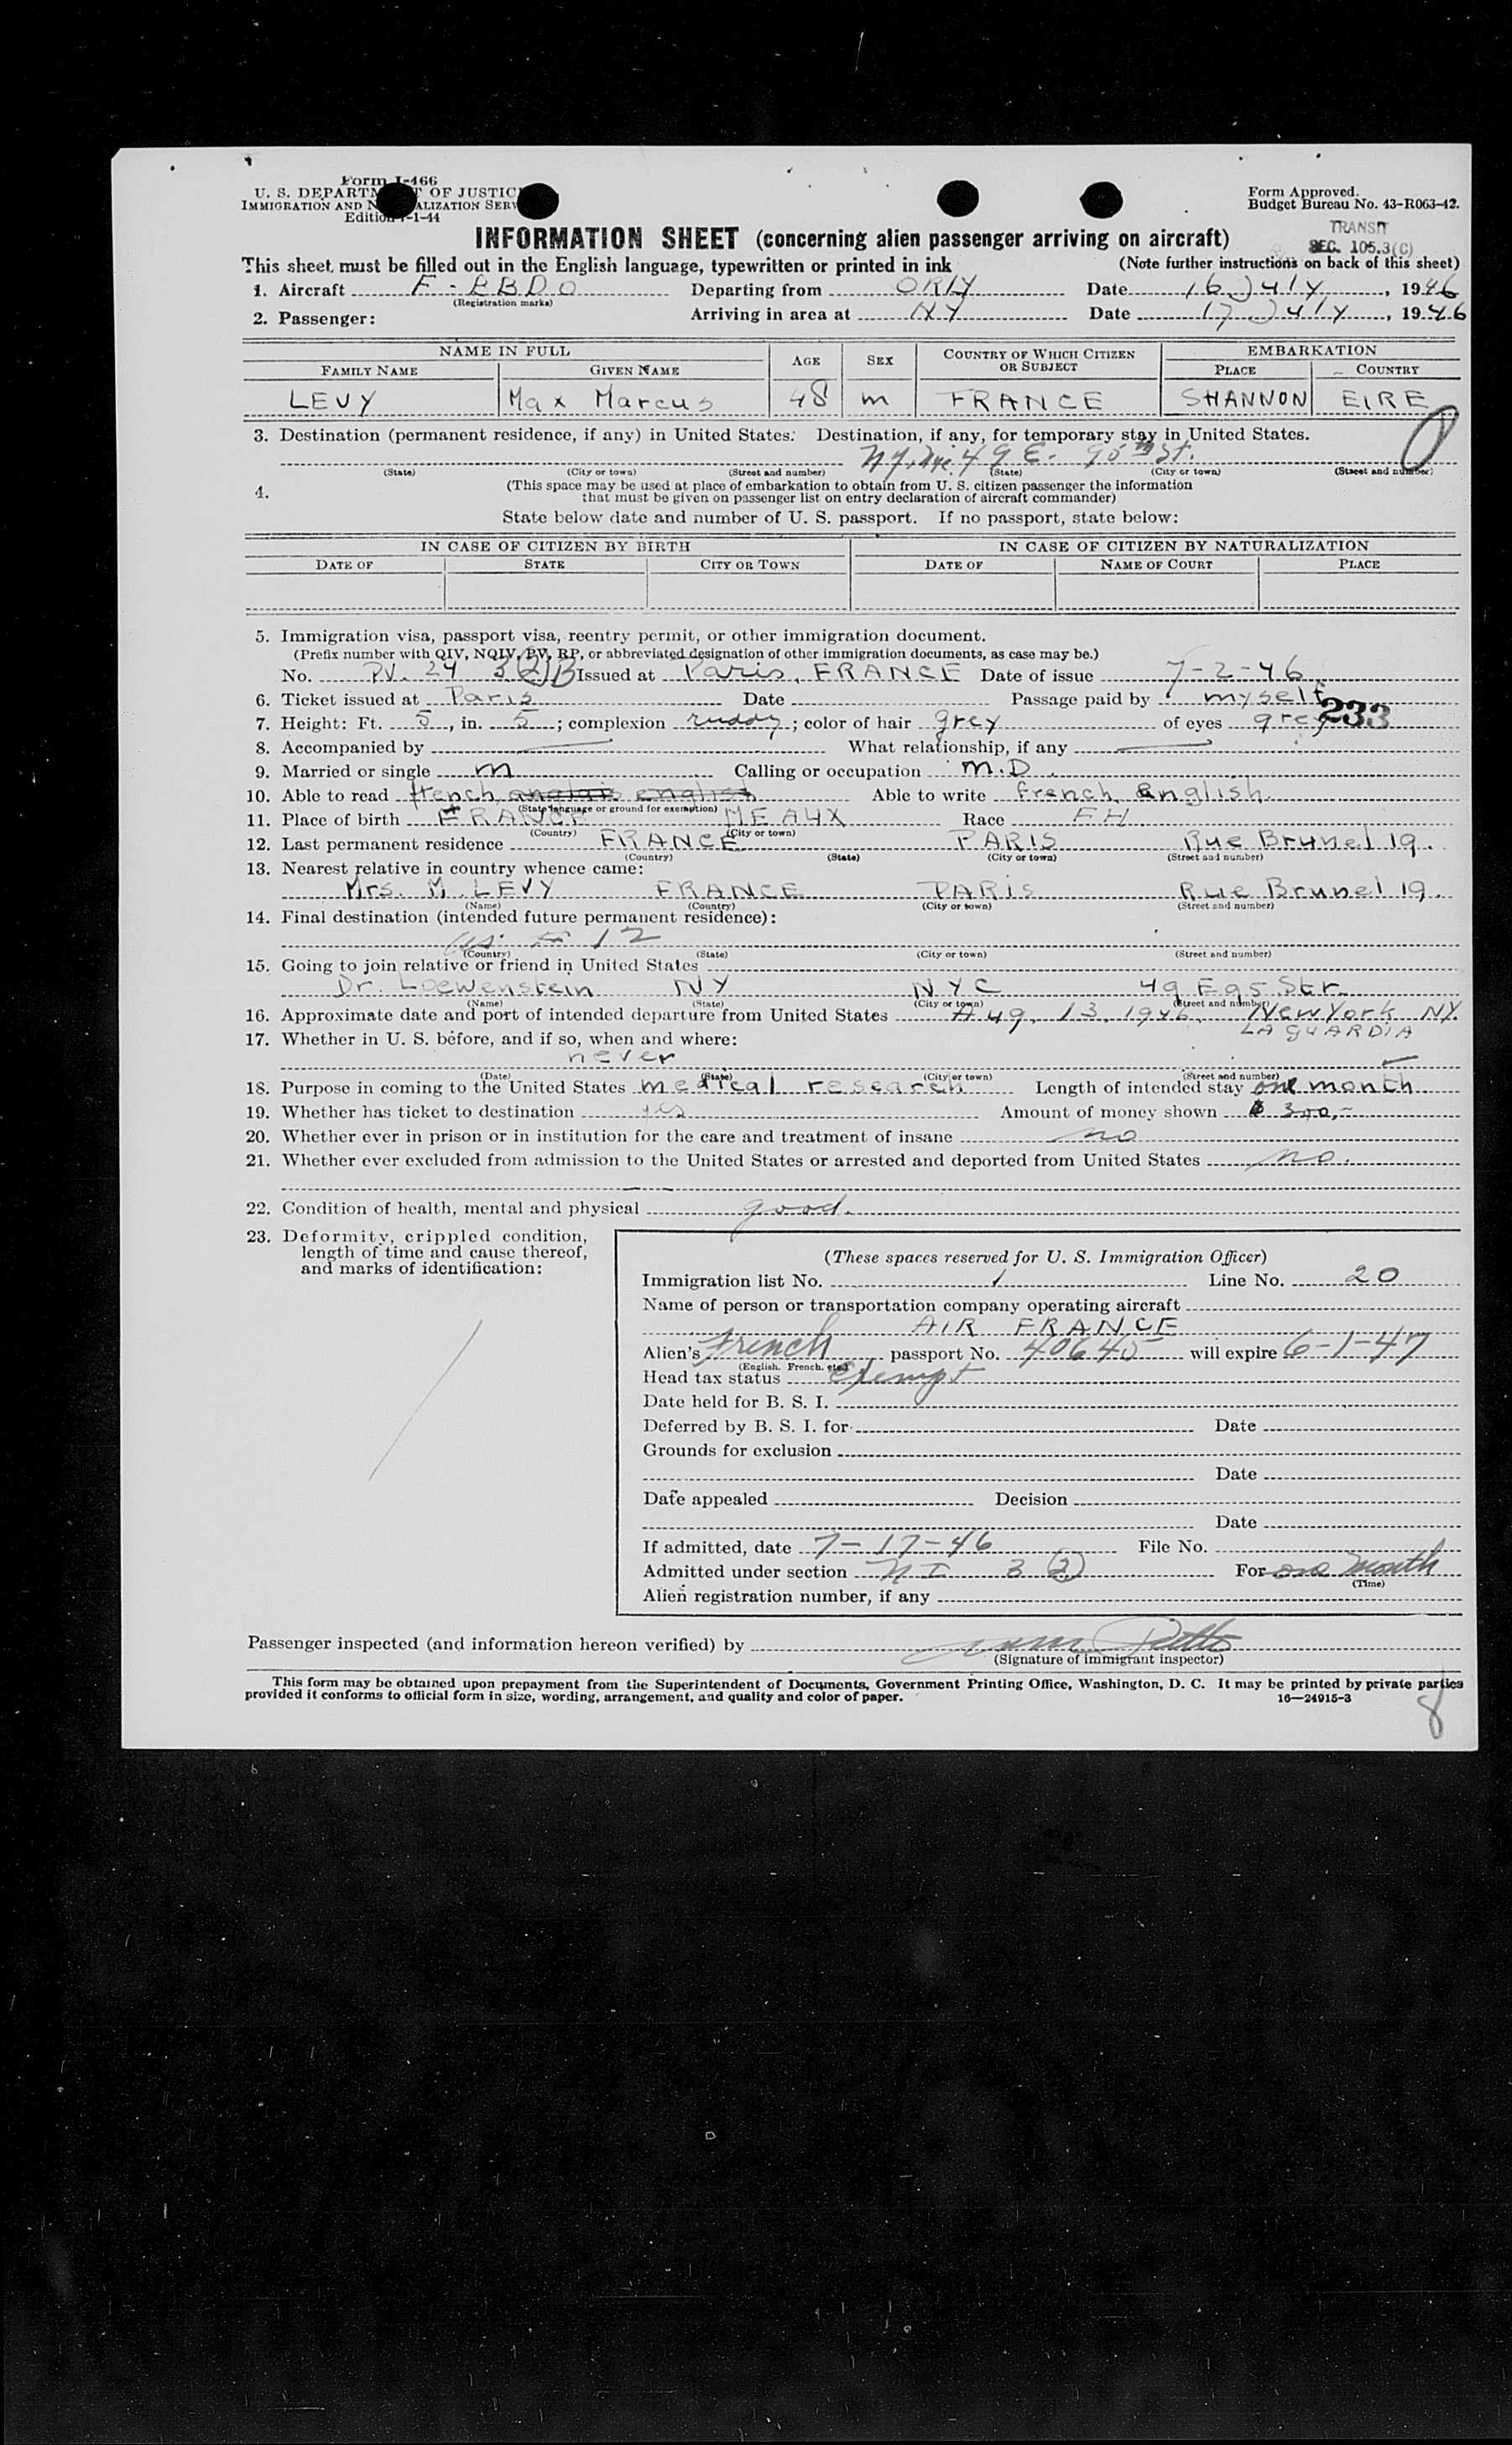 Form I-466
U. S. DEPARTMENT OF JUSTICE
IMMIGRATION AND NATURALIZATION SERV
Edition 7-1-44
Form Approved.
Budget Bureau No. 43-R063-42.
TRANSIT
SEC. 105.3(C)
INFORMATION SHEET (concerning alien passenger arriving on aircraft)
This sheet must be filled out in the English language, typewritten or printed in ink (Note further instructions on back of this sheet)
1. Aircraft F-BBDO Departing from ORLY Date 16 July, 1946
(Registration marks)
2. Passenger: Arriving in area at NY Date 17 July, 1946
NAME IN FULL AGE SEX COUNTRY OF WHICH CITIZEN OR SUBJECT EMBARKATION
FAMILY NAME GIVEN NAME PLACE COUNTRY
LEVY Max Marcus 48 m FRANCE SHANNON EIRE
3. Destination (permanent residence, if any) in United States. Destination, if any, for temporary stay in United States.
49 E. 95th St.
(State) (City or town) (Street and number) (State) (City or town) (Street and number)
4. (This space may be used at place of embarkation to obtain from U. S. citizen passenger the information
that must be given on passenger list on entry declaration of aircraft commander)
State below date and number of U. S. passport. If no passport, state below:
IN CASE OF CITIZEN BY BIRTH IN CASE OF CITIZEN BY NATURALIZATION
DATE OF STATE CITY OR TOWN DATE OF NAME OF COURT PLACE
5. Immigration visa, passport visa, reentry permit, or other immigration document.
(Prefix number with QIV, NQIV, PV, RP, or abbreviated designation of other immigration documents, as case may be.)
No. PV. 24 3(2)B Issued at Paris, FRANCE Date of issue 7-2-46
6. Ticket issued at Paris Date Passage paid by myself
233
7. Height: Ft. 5, in. 5; complexion ruddy; color of hair grey of eyes grey
8. Accompanied by What relationship, if any
9. Married or single m Calling or occupation M.D.
10. Able to read french, anglais english Able to write french, english.
(State language or ground for exemption)
11. Place of birth FRANCE MEAUX Race FH
(Country) (City or town)
12. Last permanent residence FRANCE PARIS Rue Brunel 19.
(Country) (State) (City or town) (Street and number)
13. Nearest relative in country whence came:
Mrs. M. LEVY FRANCE PARIS Rue Brunel 19.
(Name) (Country) (City or town) (Street and number)
14. Final destination (intended future permanent residence):
as # 12
(Country) (State) (City or town) (Street and number)
15. Going to join relative or friend in United States
Dr. Loewenstein NY NYC 49 E 95 Str.
(Name) (State) (City or town) (Street and number)
16. Approximate date and port of intended departure from United States Aug. 13. 1946. New York NY.
LA GUARDIA
17. Whether in U. S. before, and if so, when and where:
never
(Date) (State) (City or town) (Street and number)
18. Purpose in coming to the United States medical research Length of intended stay one month
19. Whether has ticket to destination yes Amount of money shown $ 300,-
20. Whether ever in prison or in institution for the care and treatment of insane no
21. Whether ever excluded from admission to the United States or arrested and deported from United States no.
22. Condition of health, mental and physical good.
23. Deformity, crippled condition,
length of time and cause thereof,
and marks of identification:
(These spaces reserved for U. S. Immigration Officer)
Immigration list No. 1 Line No. 20
Name of person or transportation company operating aircraft
AIR FRANCE
Alien's French passport No. 40645 will expire 6-1-47
(English, French, etc.)
Head tax status Exempt
Date held for B. S. I.
Deferred by B. S. I. for Date
Grounds for exclusion
Date
Date appealed Decision
Date
If admitted, date 7-17-46 File No.
Admitted under section NI 3(2) For one month
(Time)
Alien registration number, if any
Passenger inspected (and information hereon verified) by
(Signature of immigrant inspector)
This form may be obtained upon prepayment from the Superintendent of Documents, Government Printing Office, Washington, D. C. It may be printed by private parties
provided it conforms to official form in size, wording, arrangement, and quality and color of paper. 16—24915-3
8